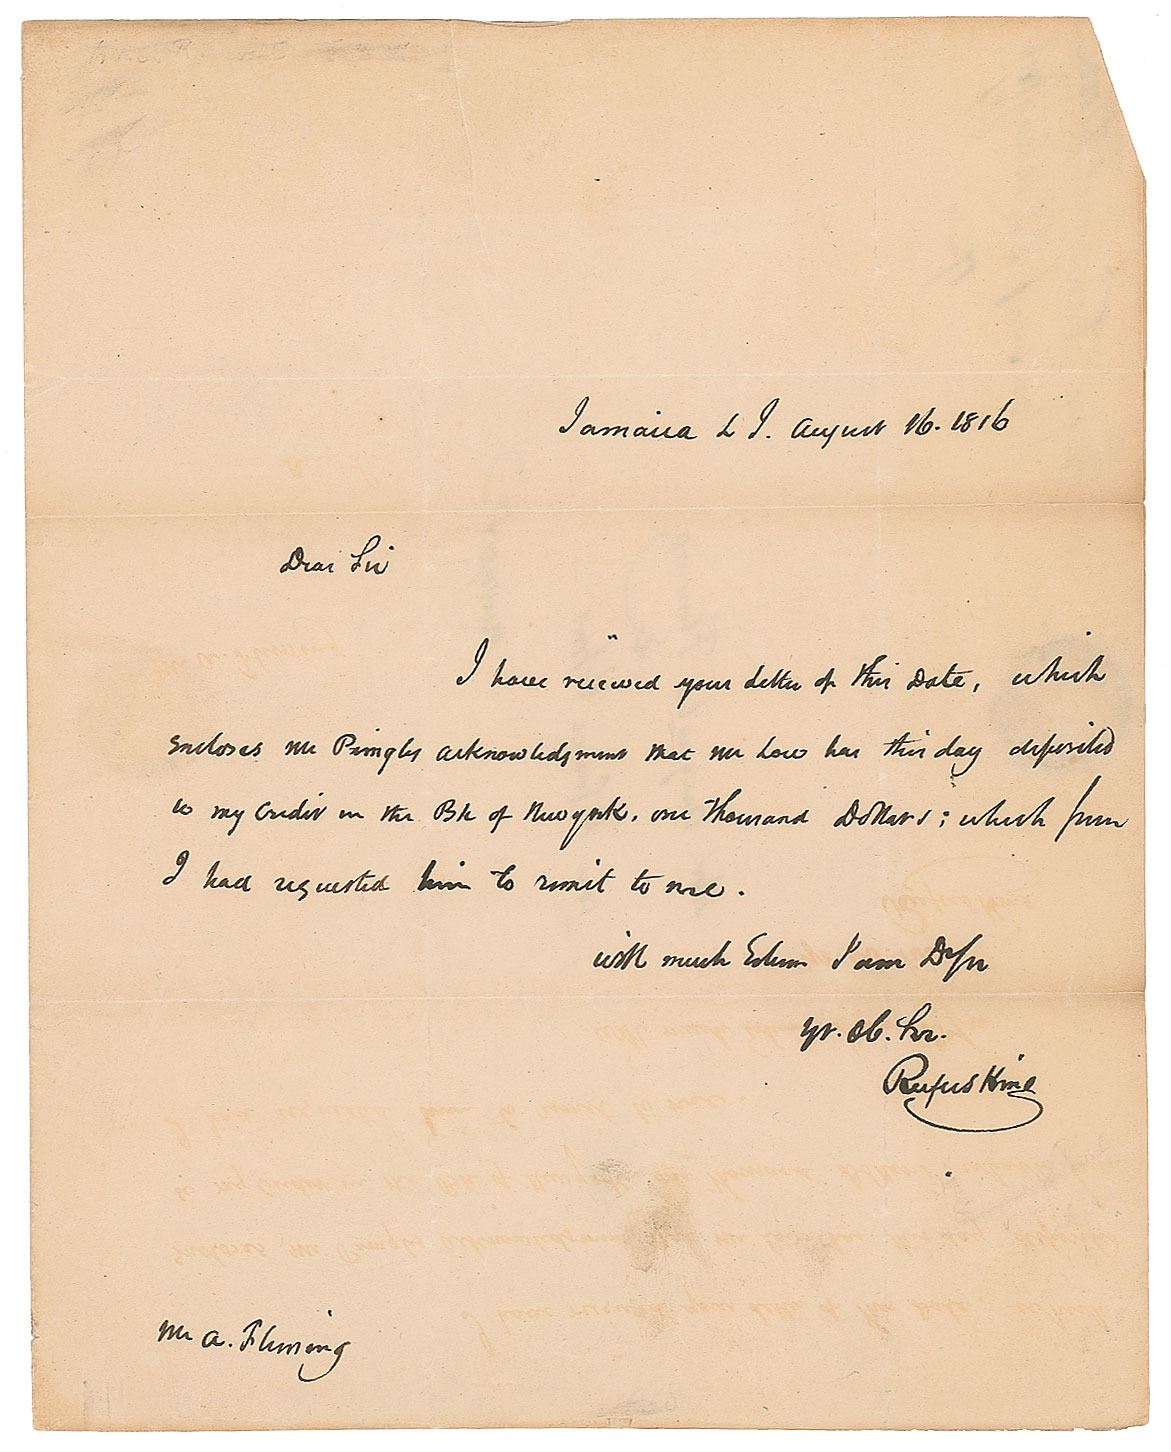 Jamaica L I. August 16. 1816
Dear Sir
I have received your Letter of this Date, which
encloses Mr Pringles acknowledgment that Mr Low has this day deposited
to my Credit in the Bk of Newyork, one thousand Dollars; which sum
I had requested him to remit to me.
with much Esteem I am Dr Sir
yr. Ob. Ser.
Rufus King
Mr A. Fleming